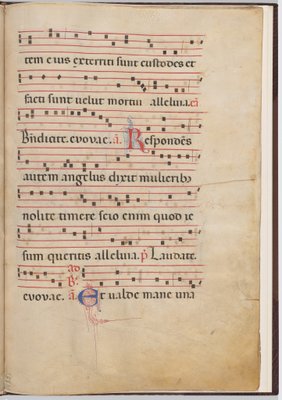 tem eius exterriti sunt custodes et
facti sunt uelut mortui alleluia. a
Bndicite. evovae. a. Respondens
autem angelus dixit mulierib
nolite timere scio enim quod ie
sum queritis alleluia. p Laudate.
ad B.
evovae. a. Et valde mane una